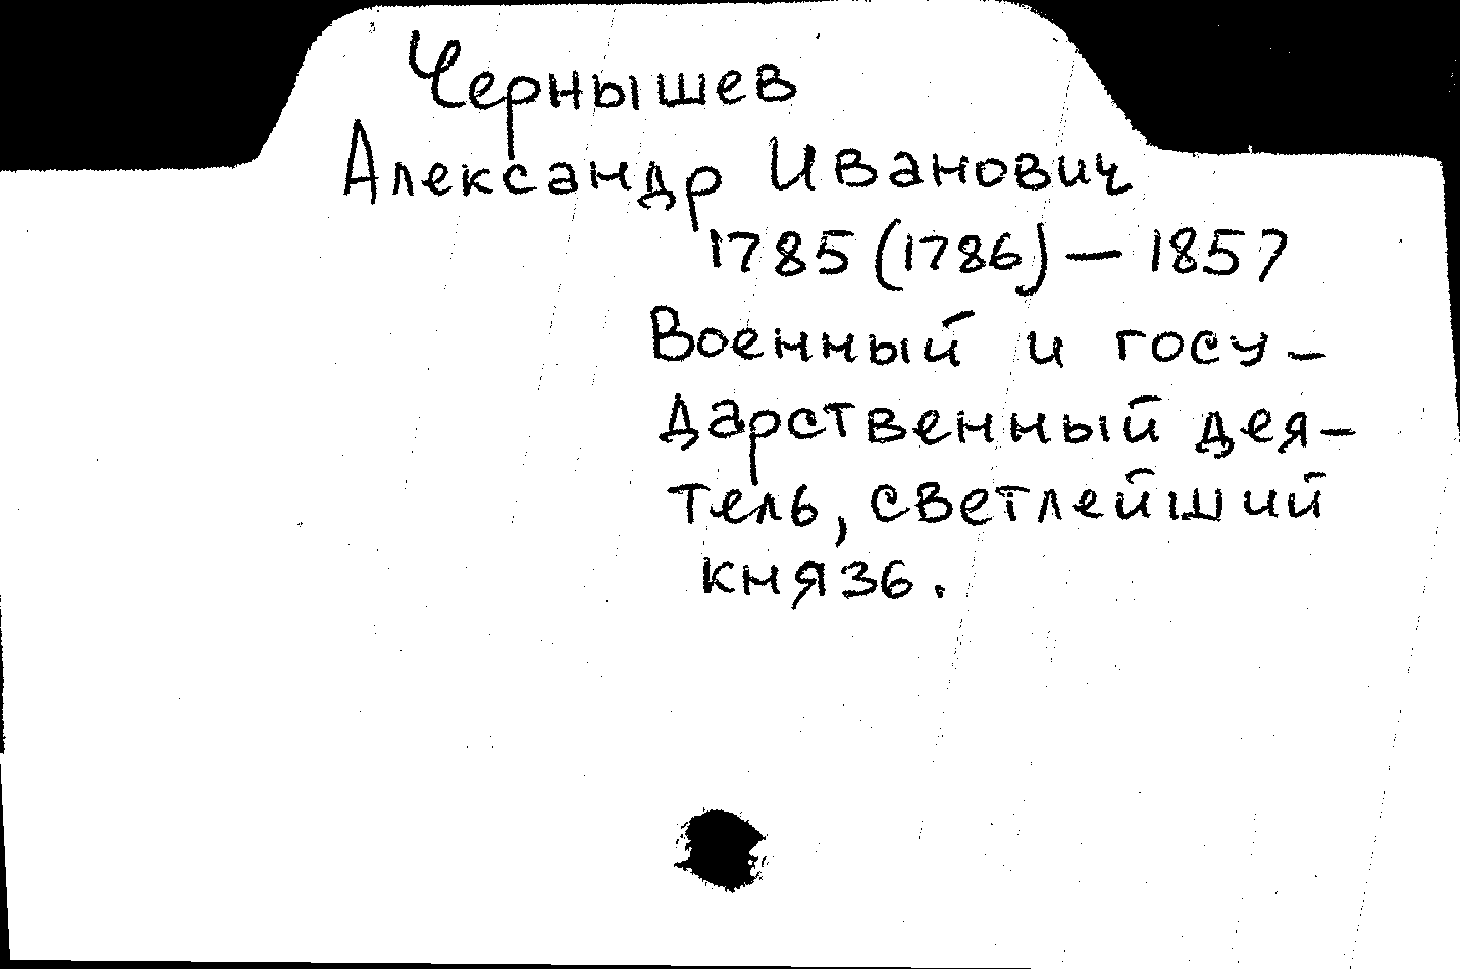 Чернышев
Александр Иванович
1785 (1786) — 1857
Военный и госу-
дарственный дея-
тель, светлейший
князь.